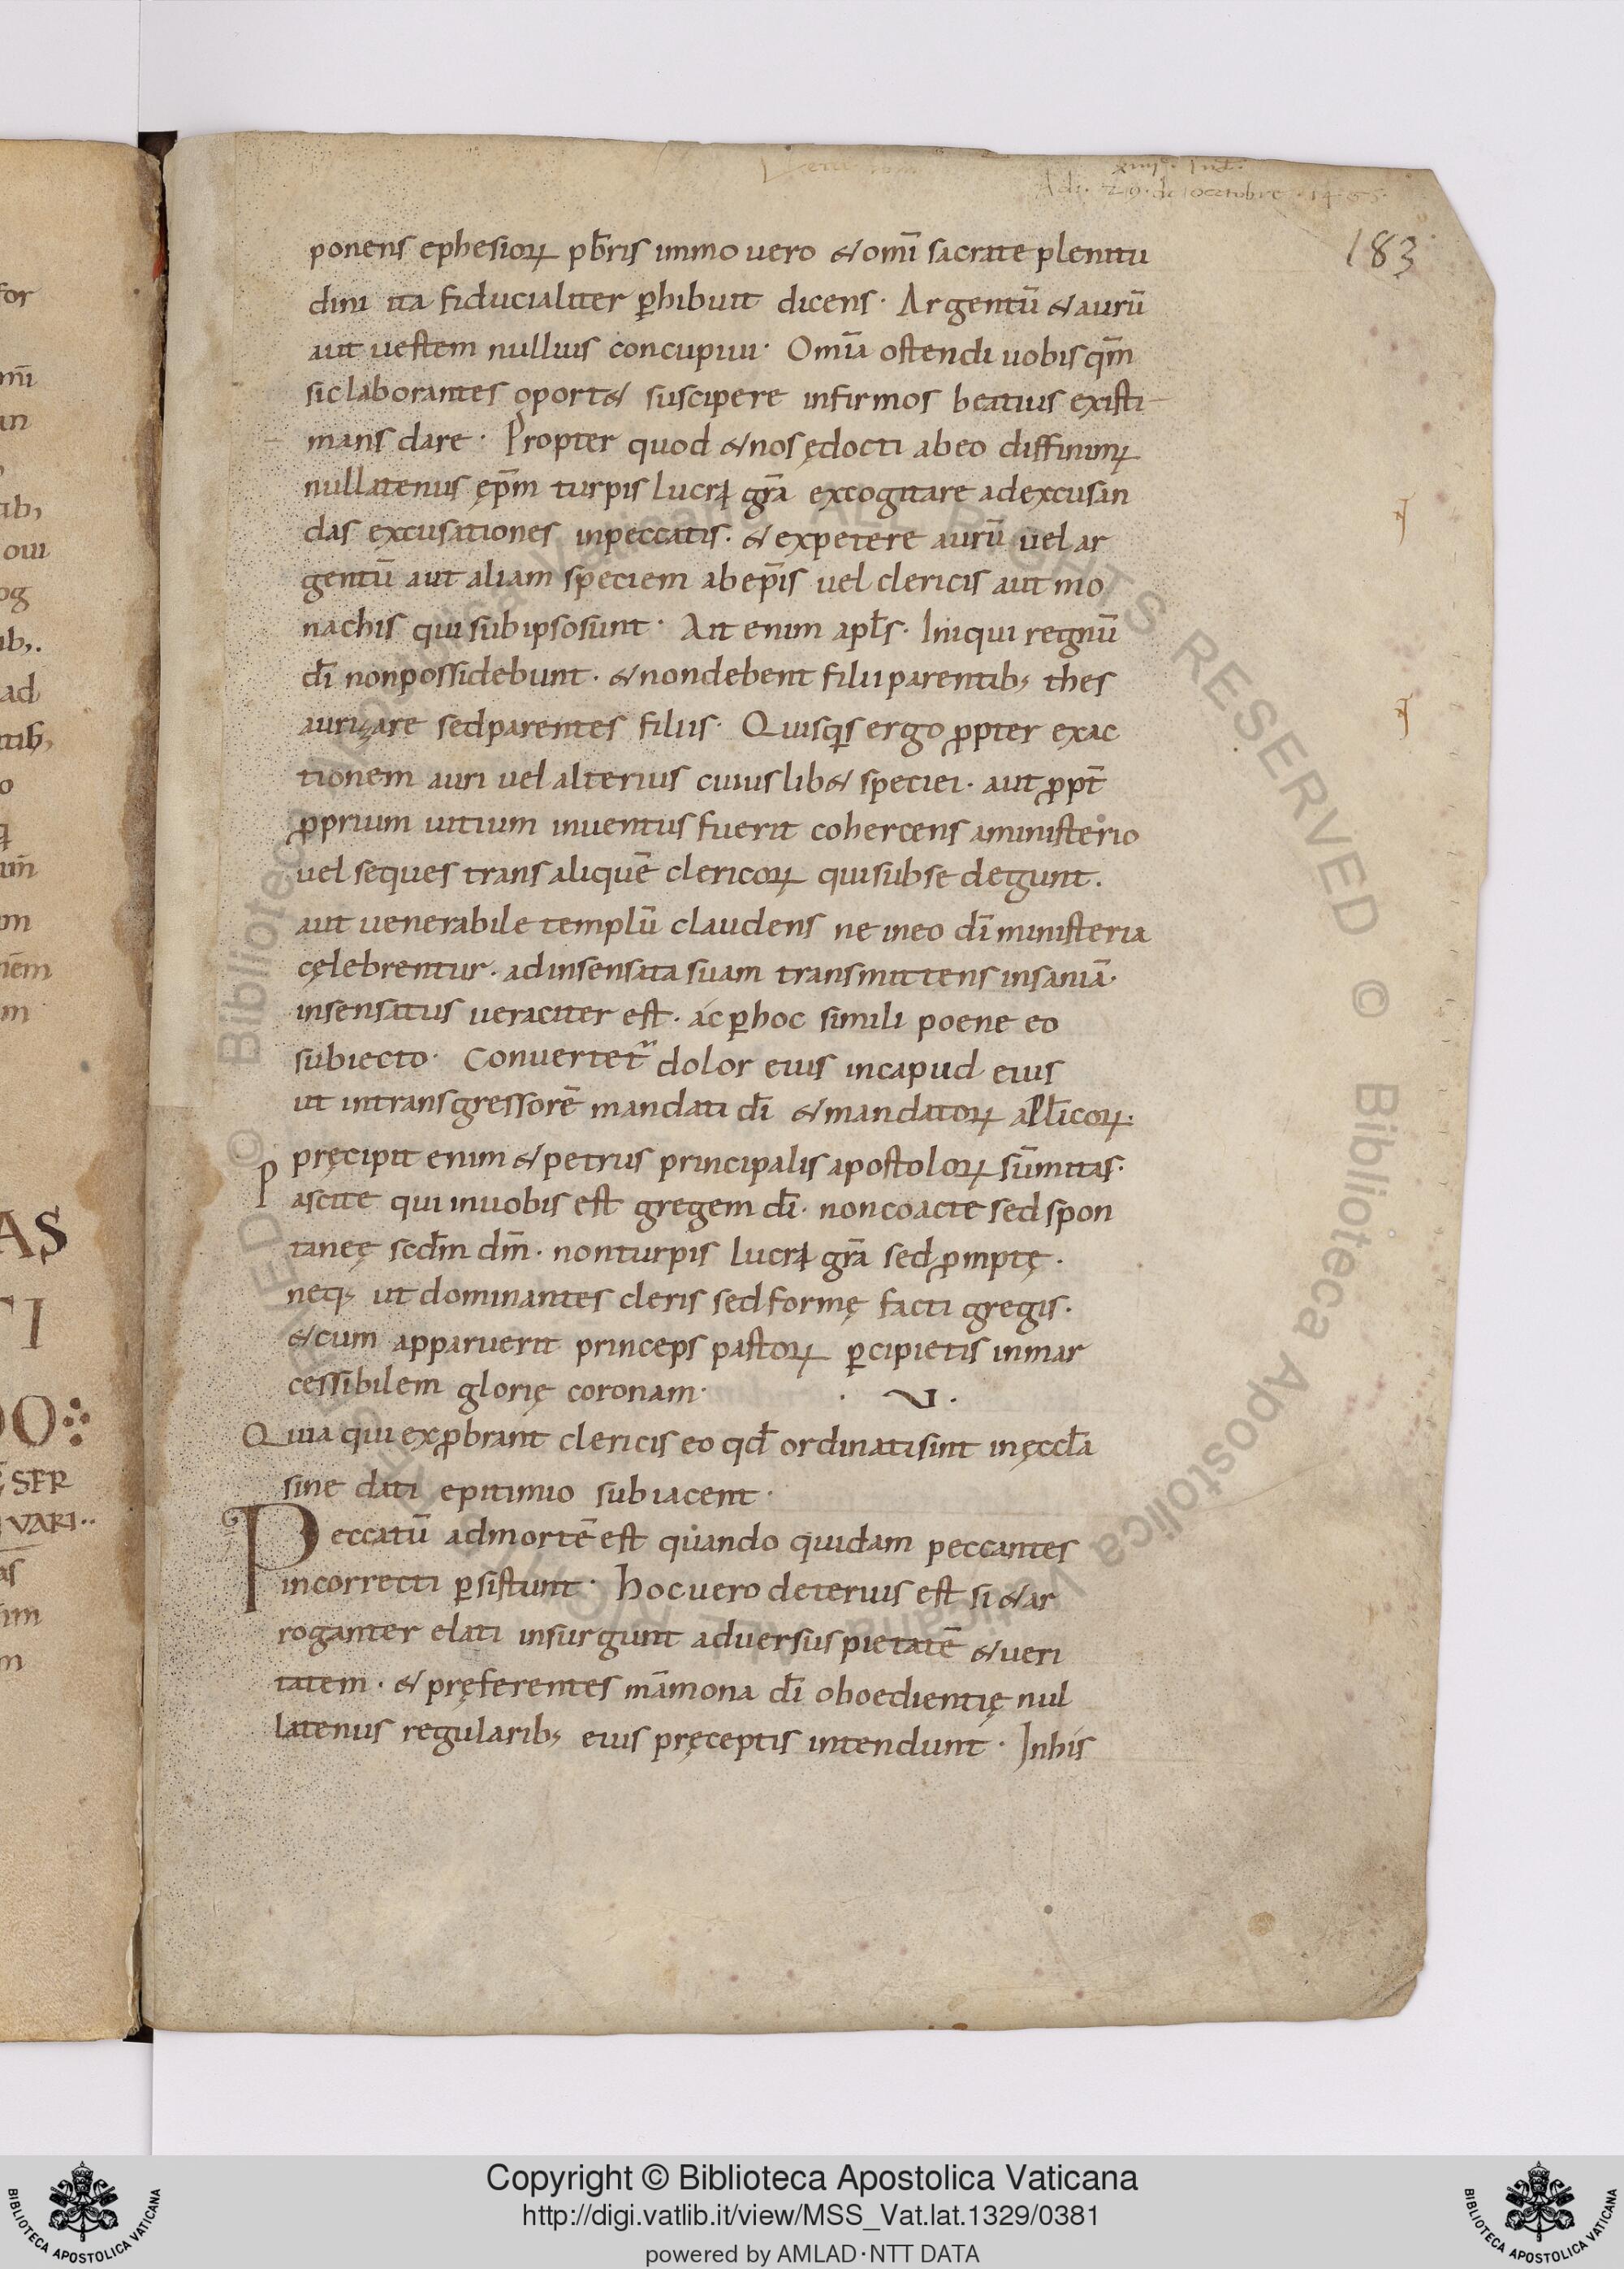 xiiij. Ind.
Adi. 29. de octobre. 1455.
183
ponens ephesioꝝ pb̄ris immo uero & om̄i sacrate plenitu
dini ita fiducialiter ꝑhibuit dicens. Argentū & aurū
aut uestem nullius concupiui. Om̄ia ostendi uobis qm̄
sic laborantes oport& suscipere infirmos beatius existi
mans dare. Propter quod & nos ędocti ab eo diffinimꝰ
nullatenus ępm̄ turpis lucri gr̄a excogitare ad excusan
das excusationes in peccatis. & expetere aurū uel ar
gentū aut aliam speciem ab ep̄is uel clericis aut mo
nachis qui sub ipso sunt. Ait enim apl̄s. Iniqui regnū
dī non possidebunt. & non debent filii parentib; thes
aurizare sed parentes filiis. Quisq̄s ergo ꝓpter exac
tionem auri uel alterius cuiuslib& speciei. aut ꝓpt̄
ꝓprium uitium inuentus fuerit cohercens a ministerio
uel sequestrans aliquē clericoꝝ qui sub se degunt.
aut uenerabile templū claudens ne in eo dī ministeria
cęlebrentur. ad insensata suam transmittens insaniā.
insensatus ueraciter est. ác ꝑ hoc simili poene eo
subiecto. Conuertet̄ dolor eius in capud eius
ut in transgressorē mandati dī & mandatoꝝ apl̄icoꝝ.
pręcipit enim & petrus principalis apostoloꝝ sūmitas.
P ascite qui in uobis est gregem dī. non coacte sed spon
taneę scd̄m dm̄. non turpis lucri gr̄a sed ꝓmptę.
neq; ut dominantes cleris sed formę facti gregis.
& cum apparuerit princeps pastoꝝ ꝑcipietis inmar
cessibilem glorię coronam. . V .
Quia qui exꝓbrant clericis eo qd̄ ordinati sint in ęccl̄a
sine dati epitimio subiacent.
Peccatū ad mortē est quando quidam peccantes
incorrecti ꝑsistunt. hoc uero deterius est si & ar
roganter elati insurgunt aduersus pietatē & ueri
tatem. & pręferentes māmona dī oboedientię nul
latenus regularib; eius pręceptis intendunt. In his
Copyright © Biblioteca Apostolica Vaticana
http://digi.vatlib.it/view/MSS_Vat.lat.1329/0381
powered by AMLAD·NTT DATA